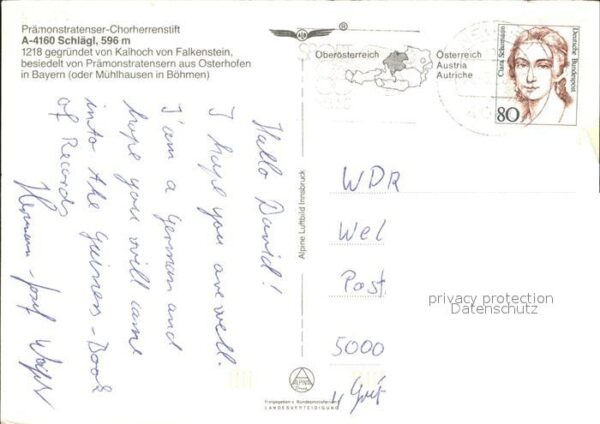 Prämonstratenser-Chorherrenstift
A-4160 Schlägl, 596 m
1218 gegründet von Kalhoch von Falkenstein,
besiedelt von Prämonstratensern aus Osterhofen
in Bayern (oder Mühlhausen in Böhmen)
Hallo David!
I hope you are well.
I am a German and
hope you will come
into the Guiness-Book
of Records
Herman-Josef
Alpine Luftbild Innsbruck
Oberösterreich
Österreich
Austria
Autriche
Clara Schumann
Deutsche Bundespost
80
WDR
Wel
Post
5000
privacy protection
Datenschutz
ALPINE
Freigegeben v. Bundesministerium f.
LANDESVERTEIDIGUNG